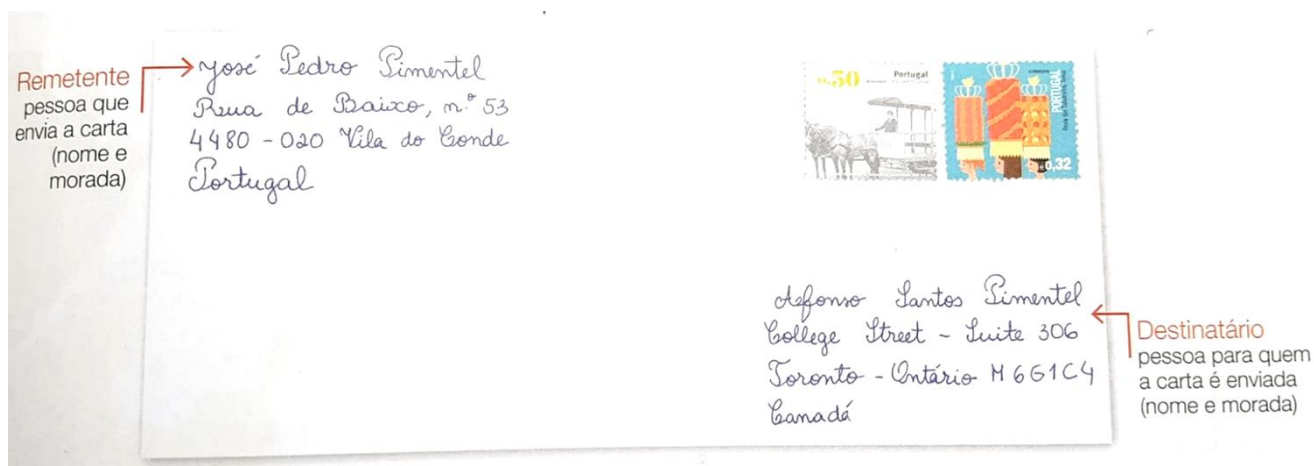 Remetente
pessoa que
envia a carta
(nome e
morada)
José Pedro Pimentel
Rua de Baixo, n.º 53
4480-020 Vila do Conde
Portugal
0.50 Portugal
PORTUGAL
0.32
Afonso Santos Pimentel
College Street - Suite 306
Toronto - Ontário M6G1C4
Canadá
Destinatário
pessoa para quem
a carta é enviada
(nome e morada)